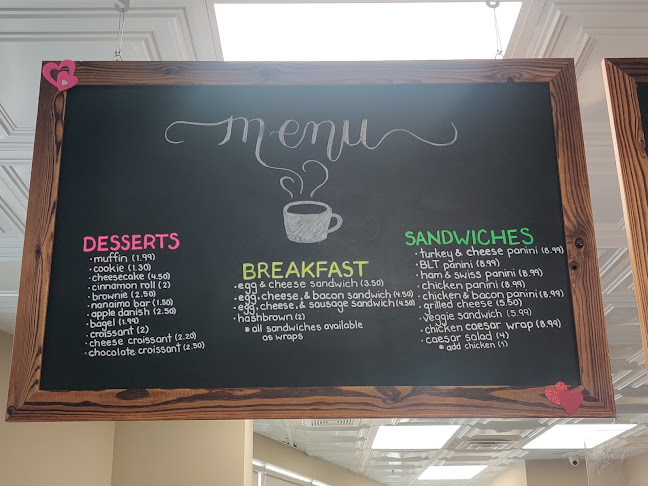 menu
DESSERTS
· muffin (1.99)
· cookie (1.30)
· cheesecake (4.50)
· cinnamon roll (2)
· brownie (2.50)
· nanaimo bar (1.50)
· apple danish (2.50)
· bagel (1.99)
· croissant (2)
· cheese croissant (2.20)
· chocolate croissant (2.50)
BREAKFAST
· egg & cheese sandwich (3.50)
· egg, cheese, & bacon sandwich (4.50)
· egg, cheese, & sausage sandwich (4.50)
· hashbrown (2)
* all sandwiches available
as wraps
SANDWICHES
· turkey & cheese panini (8.99)
· BLT panini (8.99)
· ham & swiss panini (8.99)
· chicken panini (8.99)
· chicken & bacon panini (8.99)
· grilled cheese (5.50)
· veggie sandwich (5.99)
· chicken caesar wrap (8.99)
· caesar salad (4)
* add chicken (1)